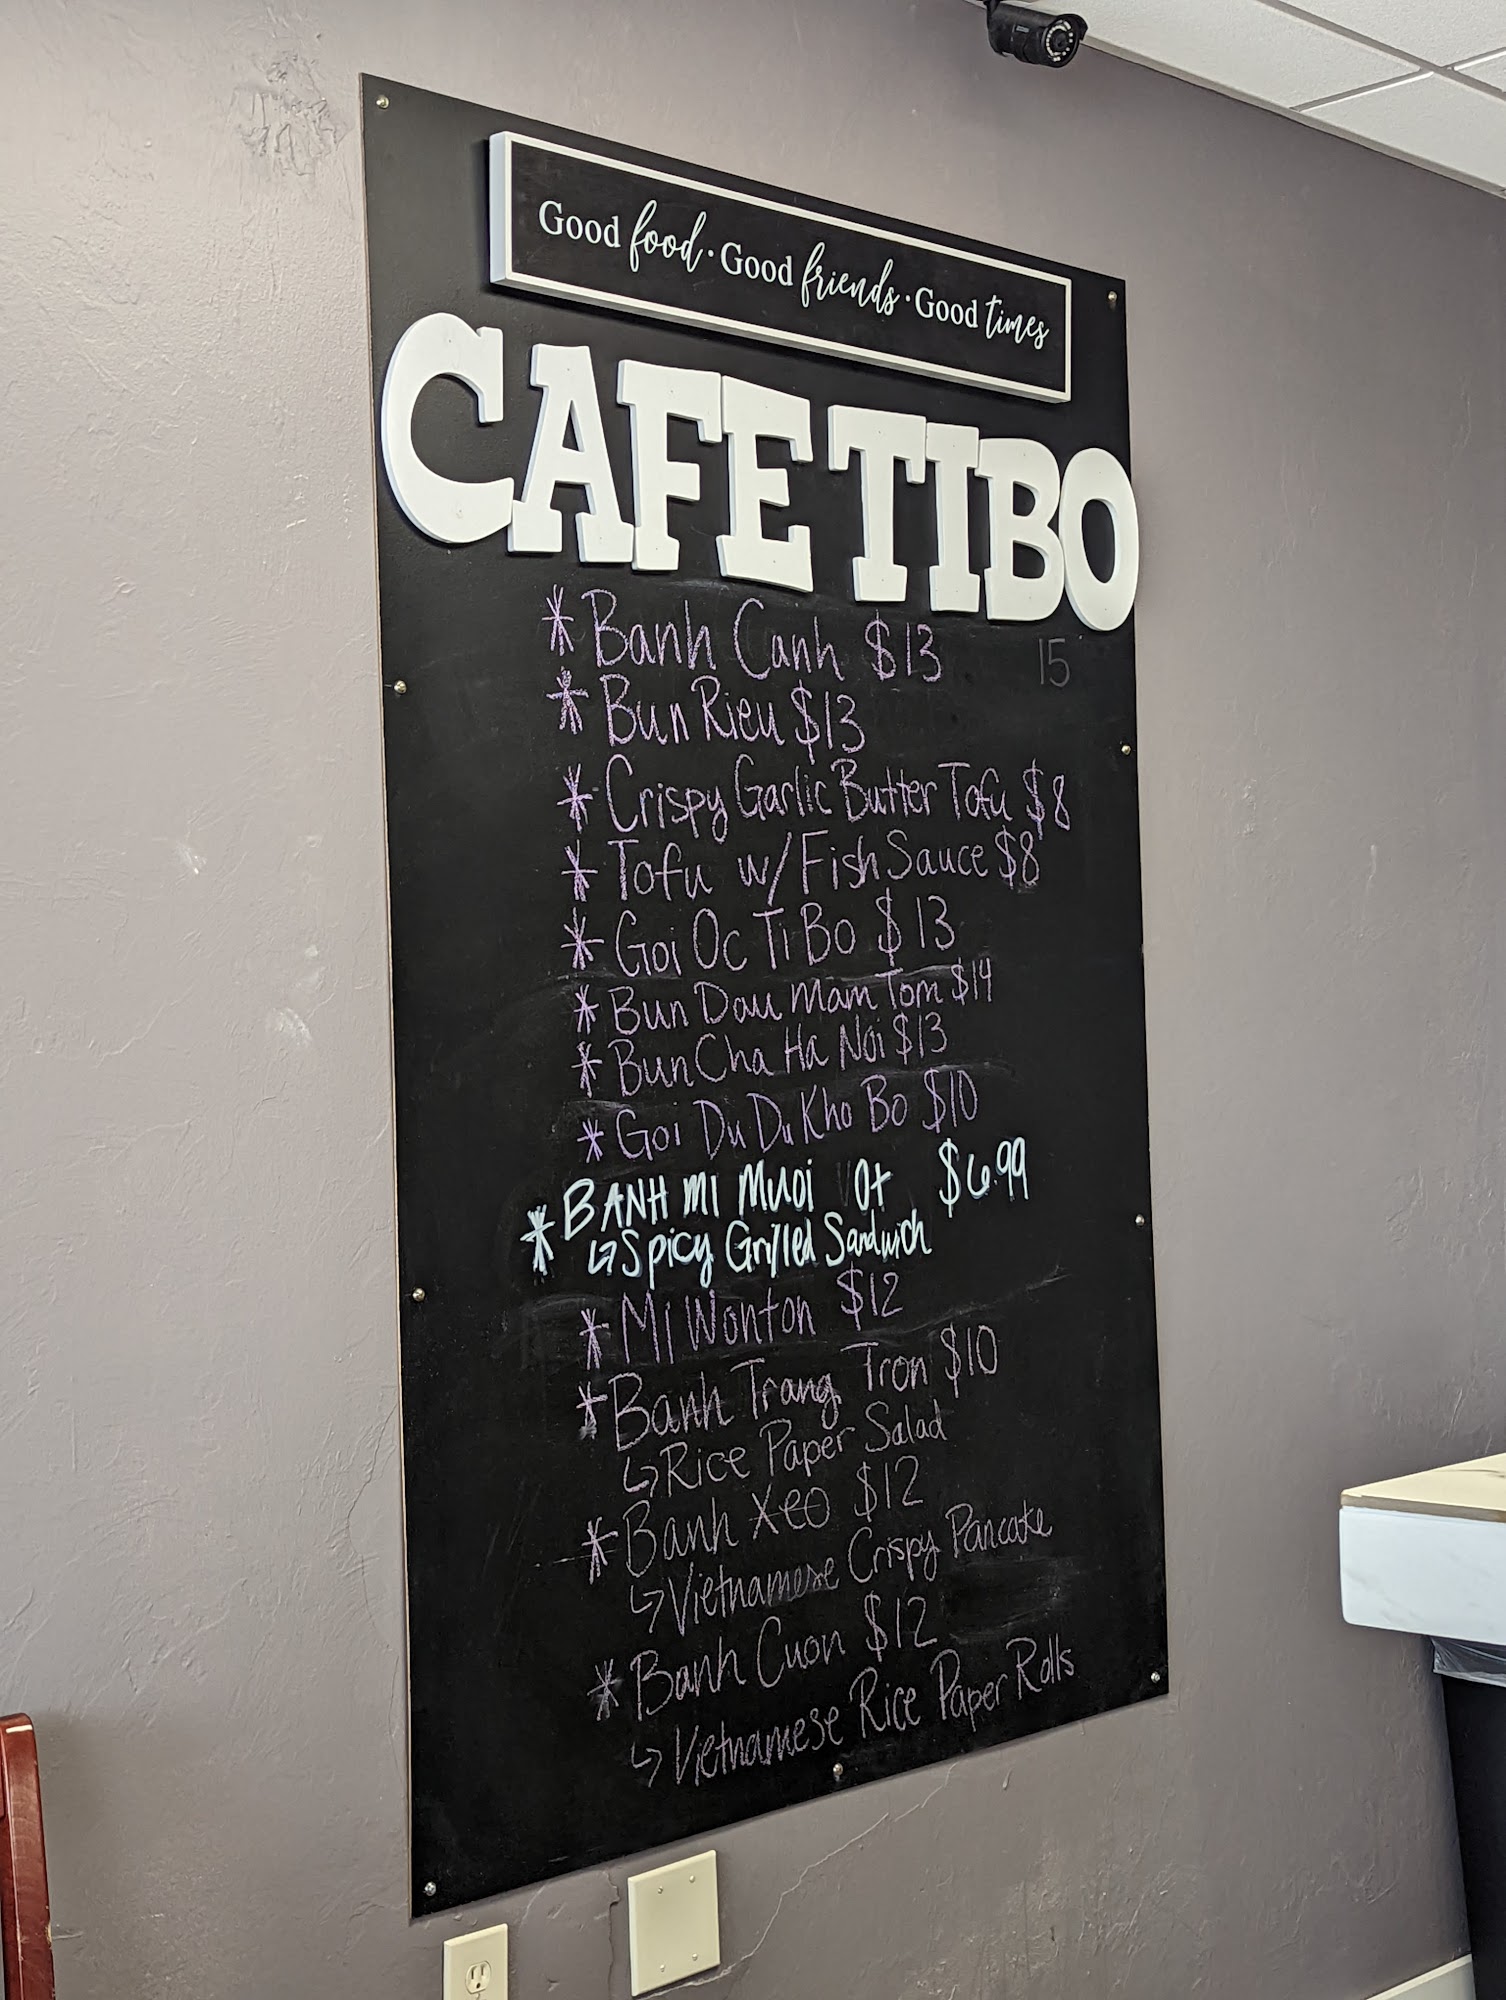 Good food · Good friends · Good times
CAFE TIBO
* Banh Canh $13 15
* Bun Rieu $13
* Crispy Garlic Butter Tofu $8
* Tofu w/ Fish Sauce $8
* Goi Oc Ti Bo $13
* Bun Dau Mam Tom $14
* Bun Cha Ha Noi $13
* Goi Du Du Kho Bo $10
* BANH MI MUOI Ot $6.99
↳ Spicy Grilled Sandwich
* Mi Wonton $12
* Banh Trang Tron $10
↳ Rice Paper Salad
* Banh Xeo $12
↳ Vietnamese Crispy Pancake
* Banh Cuon $12
↳ Vietnamese Rice Paper Rolls